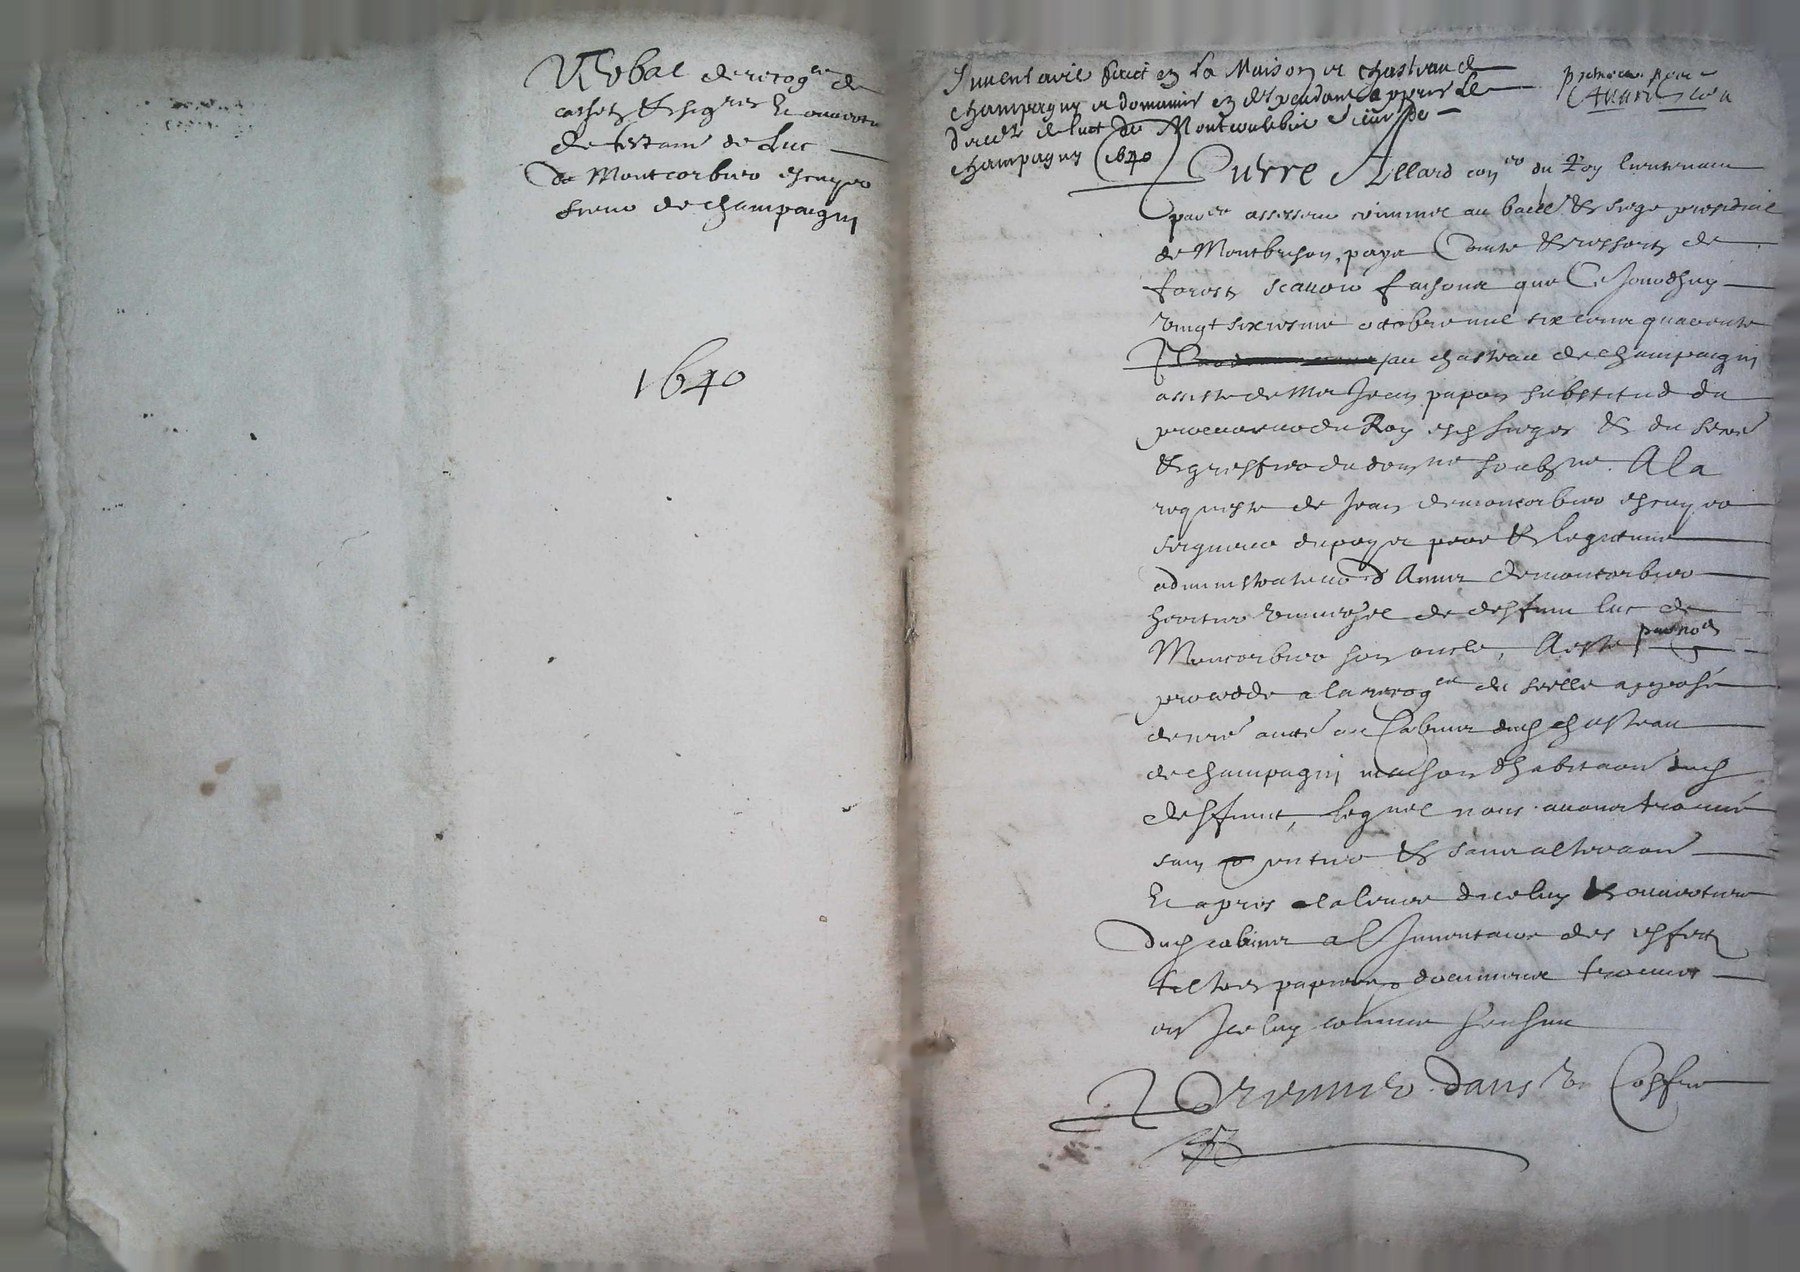 Verbal de recog.en de
cachetz & sig.res Et ouverture
de testam.t de Luc
de Montcorbier escuyer
sieur de champagny
1640
Inventaire faict en la Maison et chasteau de
champagny et domaines en despendans appres le
deceds de luc de Montcorbier sieur de
champagny 1640
premiere
Pierre Allard con.er du Roy lieutenant
par.er assesseur criminel au baill.e & siege presidial
de Montbrison, pays Comté & ressortz de
forestz scavoir faisons que Ce Jourdhuy
vingt sixiesme octobre mil six cens quarente
au chasteau de champagny
assisté de M.e Jean papon substitud du
procureur du Roy esd. sieges & du
& greffier du dom.ne soubsne. A la
requeste de Jean de montcorbier escuyer
seigneur du poyet pere & legitime
administrateur d'Aimé de montcorbier
heritier universel de deffunt luc de
Montcorbier son oncle, A esté par nous
procedé a la recog.en du scellé apposé
de nre autté au Cabinet dud. chasteau
de champagny maison d'habitaon dud.
deffunct, lequel nous avons trouvé
sain entier & sans alteraon
Et apres la levee d'iceluy & ouverture
dud. cabinet a l'Inventaire des effectz
tiltres papiers documens trouvés
en Iceluy comme s'ensuit
Premier dans un Coffre